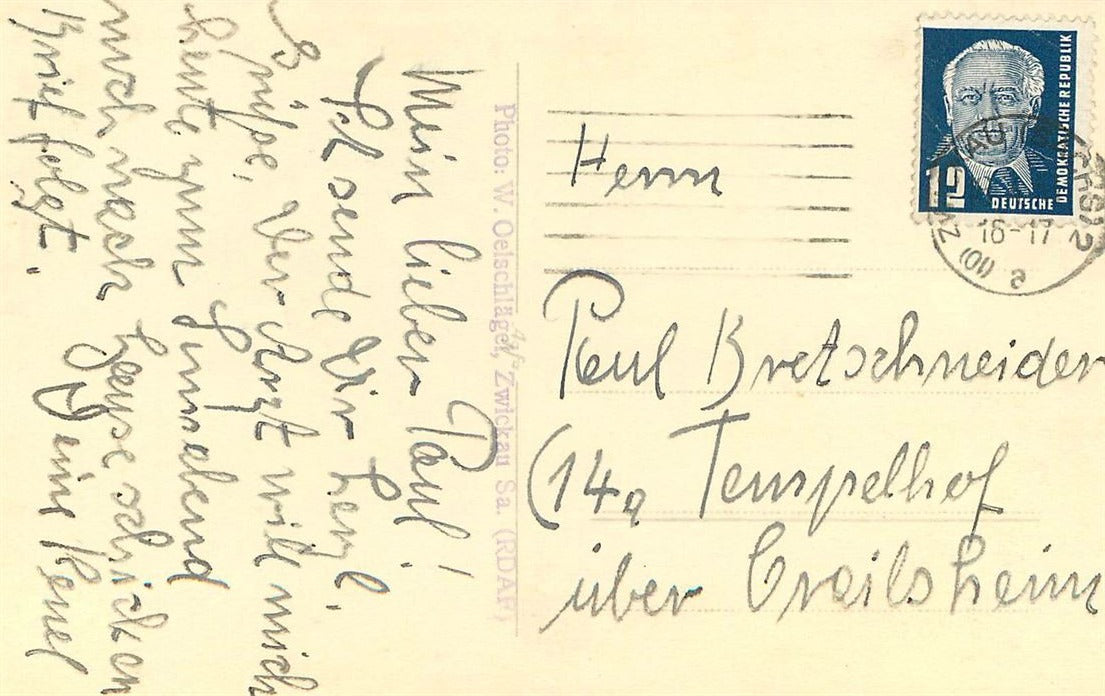 Mein lieber Paul!
Ich sende Dir herzl.
Grüße, der Arzt will mich
heute zum Sonnabend
noch nach Hause schicken
Brief folgt. Deine
Photo: W. Oelschlägel, Zwickau Sa. (RDAF)
12
DEUTSCHE
DEMOKRATISCHE REPUBLIK
16-17
(10)
Herrn
Paul Bretschneider
(14a Tempelhof
über Creilsheim